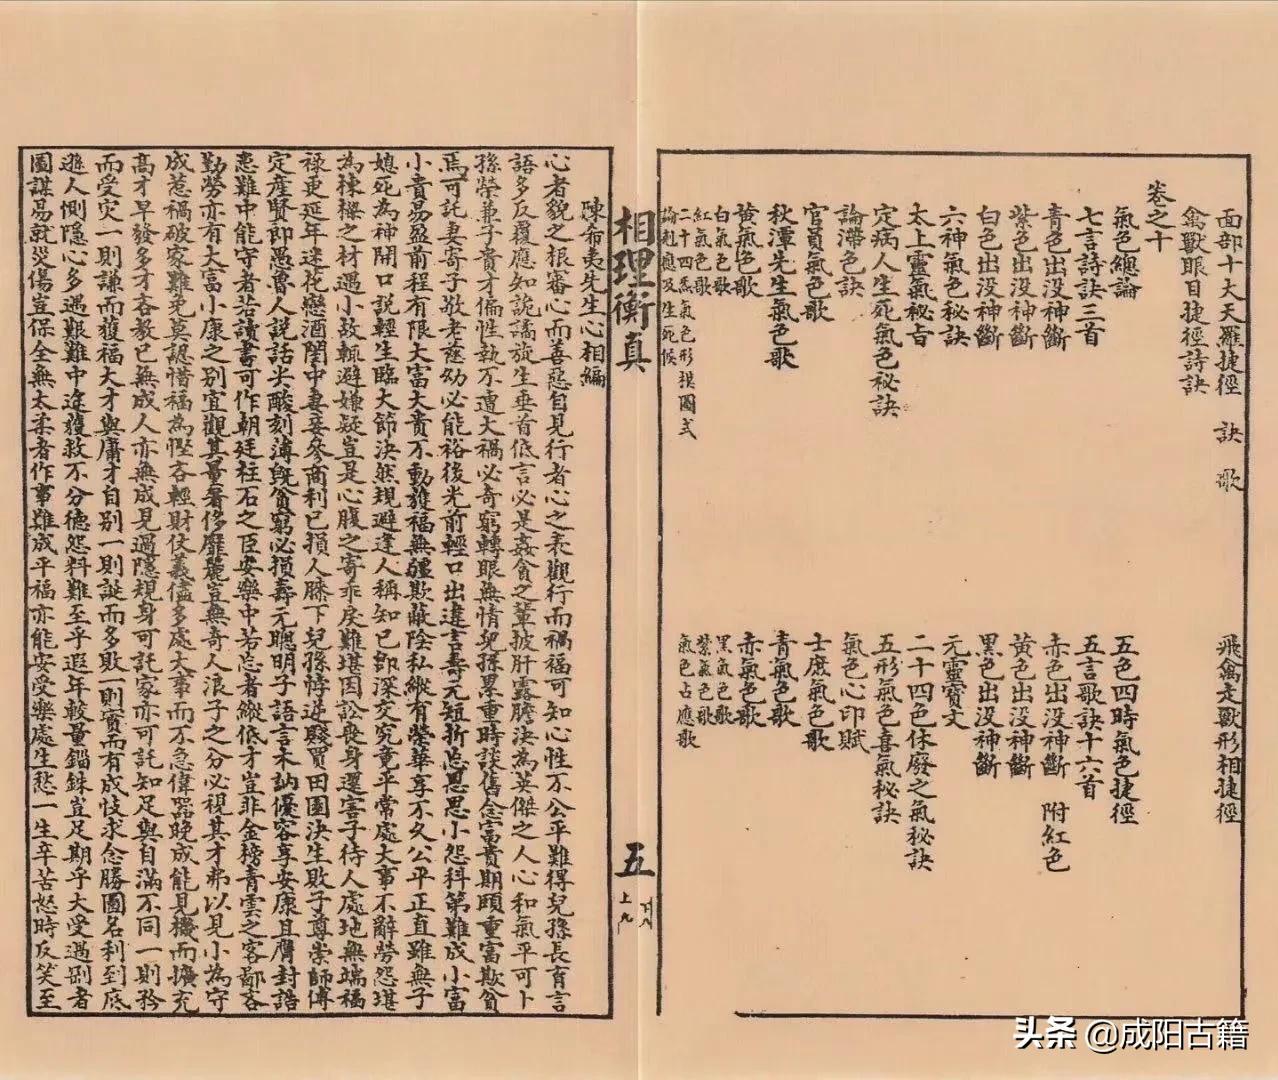 面部十大天羅捷徑　訣　歌　飛禽走獸形相捷徑
禽獸眼目捷徑詩訣
卷之十
氣色總論　五色四時氣色捷徑
七言詩訣三首　五言歌訣十六首
青色出沒神斷　赤色出沒神斷　附紅色
紫色出沒神斷　黄色出沒神斷
白色出沒神斷　黑色出沒神斷
六神氣色秘訣　元靈寶文
太上靈氣秘占　二十四色休廢之氣秘訣
定病人生死氣色秘訣　五形氣色喜氣秘訣
論滯色訣　氣色心印賦
官員氣色歌　士庶氣色歌
秋潭先生氣色歌　青氣色歌
黄氣色歌　赤氣色歌
白氣色歌　黑氣色歌
紅氣色歌　紫氣色歌
二十四氣氣色形模圖式　氣色占應歌
論剋應及生死候
相理衡真　五　上九　下八
陳希夷先生心相編
心者貌之根審心而善惡自見行者心之表觀行而禍福可知心性不公平難得兒孫長育言
語多反覆應知詭譎旋生垂首低言必是姦貪之輩披肝露膽決為英傑之人心和氣平可卜
孫榮兼子貴才偏性執不遭大禍必奇窮轉眼無情兒孫累重時談舊念富貴期頤重富欺貧
焉可託妻寄子敬老慈幼必能裕後光前輕口出違言壽元短折忘恩思小怨科第難成小富
小貴易盈前程有限大富大貴不動獲福無疆欺蔽陰私縱有榮華享不久公平正直雖無子
媳死為神開口說輕生臨大節決然規避逢人稱知己即深交究竟平常處大事不辭勞怨堪
為棟樑之材遇小故輒避嫌疑豈是心腹之寄乖戾難堪因訟喪身還害子待人處地無端福
祿更延年迷花戀酒閨中妻妾參商利己損人膝下兒孫悖逆賤買田園決生敗子尊崇師傅
定產賢郎愚魯人說話尖酸刻薄既貧窮必損壽元聰明子語言木訥優容享安康且膺封誥
患難中能守者若讀書可作朝廷柱石之臣安樂中若忘者縱低才豈非金榜青雲之客鄙吝
勤勞亦有大富小康之別宜觀其量奢侈靡麗豈無奇人浪子之分必視其才弗以見小為守
成惹禍破家難免莫認惜福為慳吝輕財仗義儘多處大事而不急偉器晚成能見機而擴充
高才早發多才吝教已無成人亦無成見過隱規身可託家亦可託知足與自滿不同一則矜
而受灾一則謙而獲福大才與庸才自別一則誕而多敗一則實而有成忮求念勝圖名利到底
遜人惻隱心多遇艱難中途獲救不分德怨料難至乎遐年較量錙銖豈足期乎大受過剛者
圖謀易就災傷豈保全無太柔者作事難成平福亦能安受樂處生愁一生辛苦怒時反笑至
头条 @成阳古籍